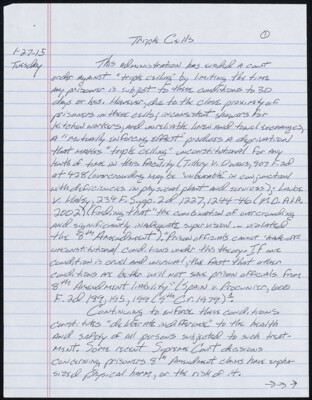 Triple Cells
①
1-27-15
Tuesday
This administration has evaded a court
order against "triple celling" by limiting the time
any prisoner is subject to these conditions to 30
days or less. However, due to the close proximity of
prisoners in these cells, inconsistent showers for
kitchen workers, and unreliable linen and towel exchanges,
a "mutually enforcing effect produces a deprivation
that makes" triple celling "unconstitutional" for any
length of time in this facility (Tillery v. Owens, 907 F.2d
at 428 (overcrowding may be "vulnerable" in conjunction
with deficiencies in physical plant and services); Laube
v. Haley, 234 F. Supp. 2d 1227, 1244-46 (M.D. Ala.
2002) (finding that "the combination of overcrowding
and significantly inadequate supervision... violated
the 8th Amendment"). "Prison officials cannot trade off
unconstitutional conditions under this theory. If one
condition is cruel and unusual, the fact that other
conditions are better will not save prison officials from
8th Amendment liability" (Spain v. Procunier, 600
F. 2d 189, 195, 199 (9th Cir. 1979)).
Continuing to enforce these conditions
constitutes "deliberate indifference" to the health
and safety of all persons subjected to such treat-
ment. Some recent Supreme Court decisions
concerning prisoners 8th Amendment claims have empha-
sized physical harm, or the risk of it.
→→→